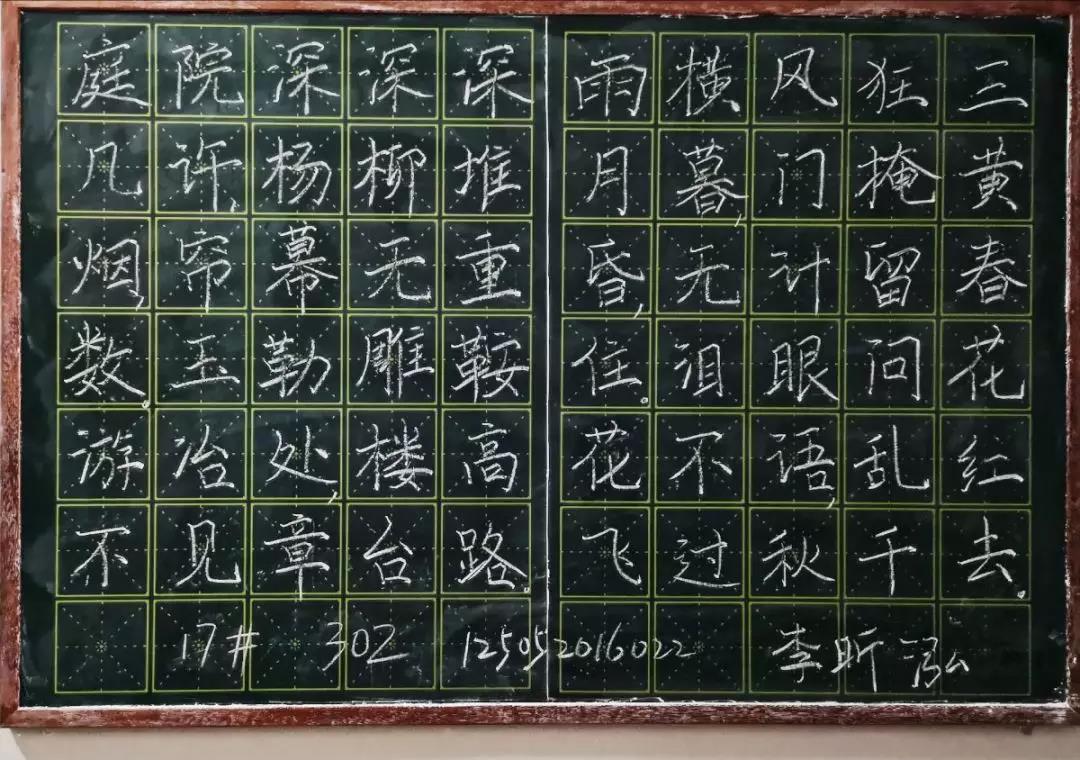 庭院深深深
几许,杨柳堆
烟,帘幕无重
数。玉勒雕鞍
游冶处,楼高
不见章台路。
雨横风狂三
月暮,门掩黄
昏,无计留春
住。泪眼问花
花不语,乱红
飞过秋千去。
17# 302 125052016022 李昕泓